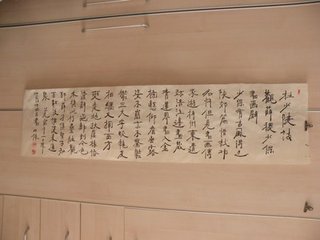 杜少陵詩
觀薛稷少保
書畫壁
少保有古風得之
陝郊篇惜哉功
名忤但見書畫傳
我遊梓州東遺
跡涪江邊畫藏
青蓮界書入金
榜懸仰看垂露
姿不崩亦不騫鬱
鬱三大字蛟龍岌
相纏又揮西方
變發地扶屋椽慘
澹壁飛動到今色
未填此行疊壯觀
郭薛俱才賢不知
百載後誰復來通
泉